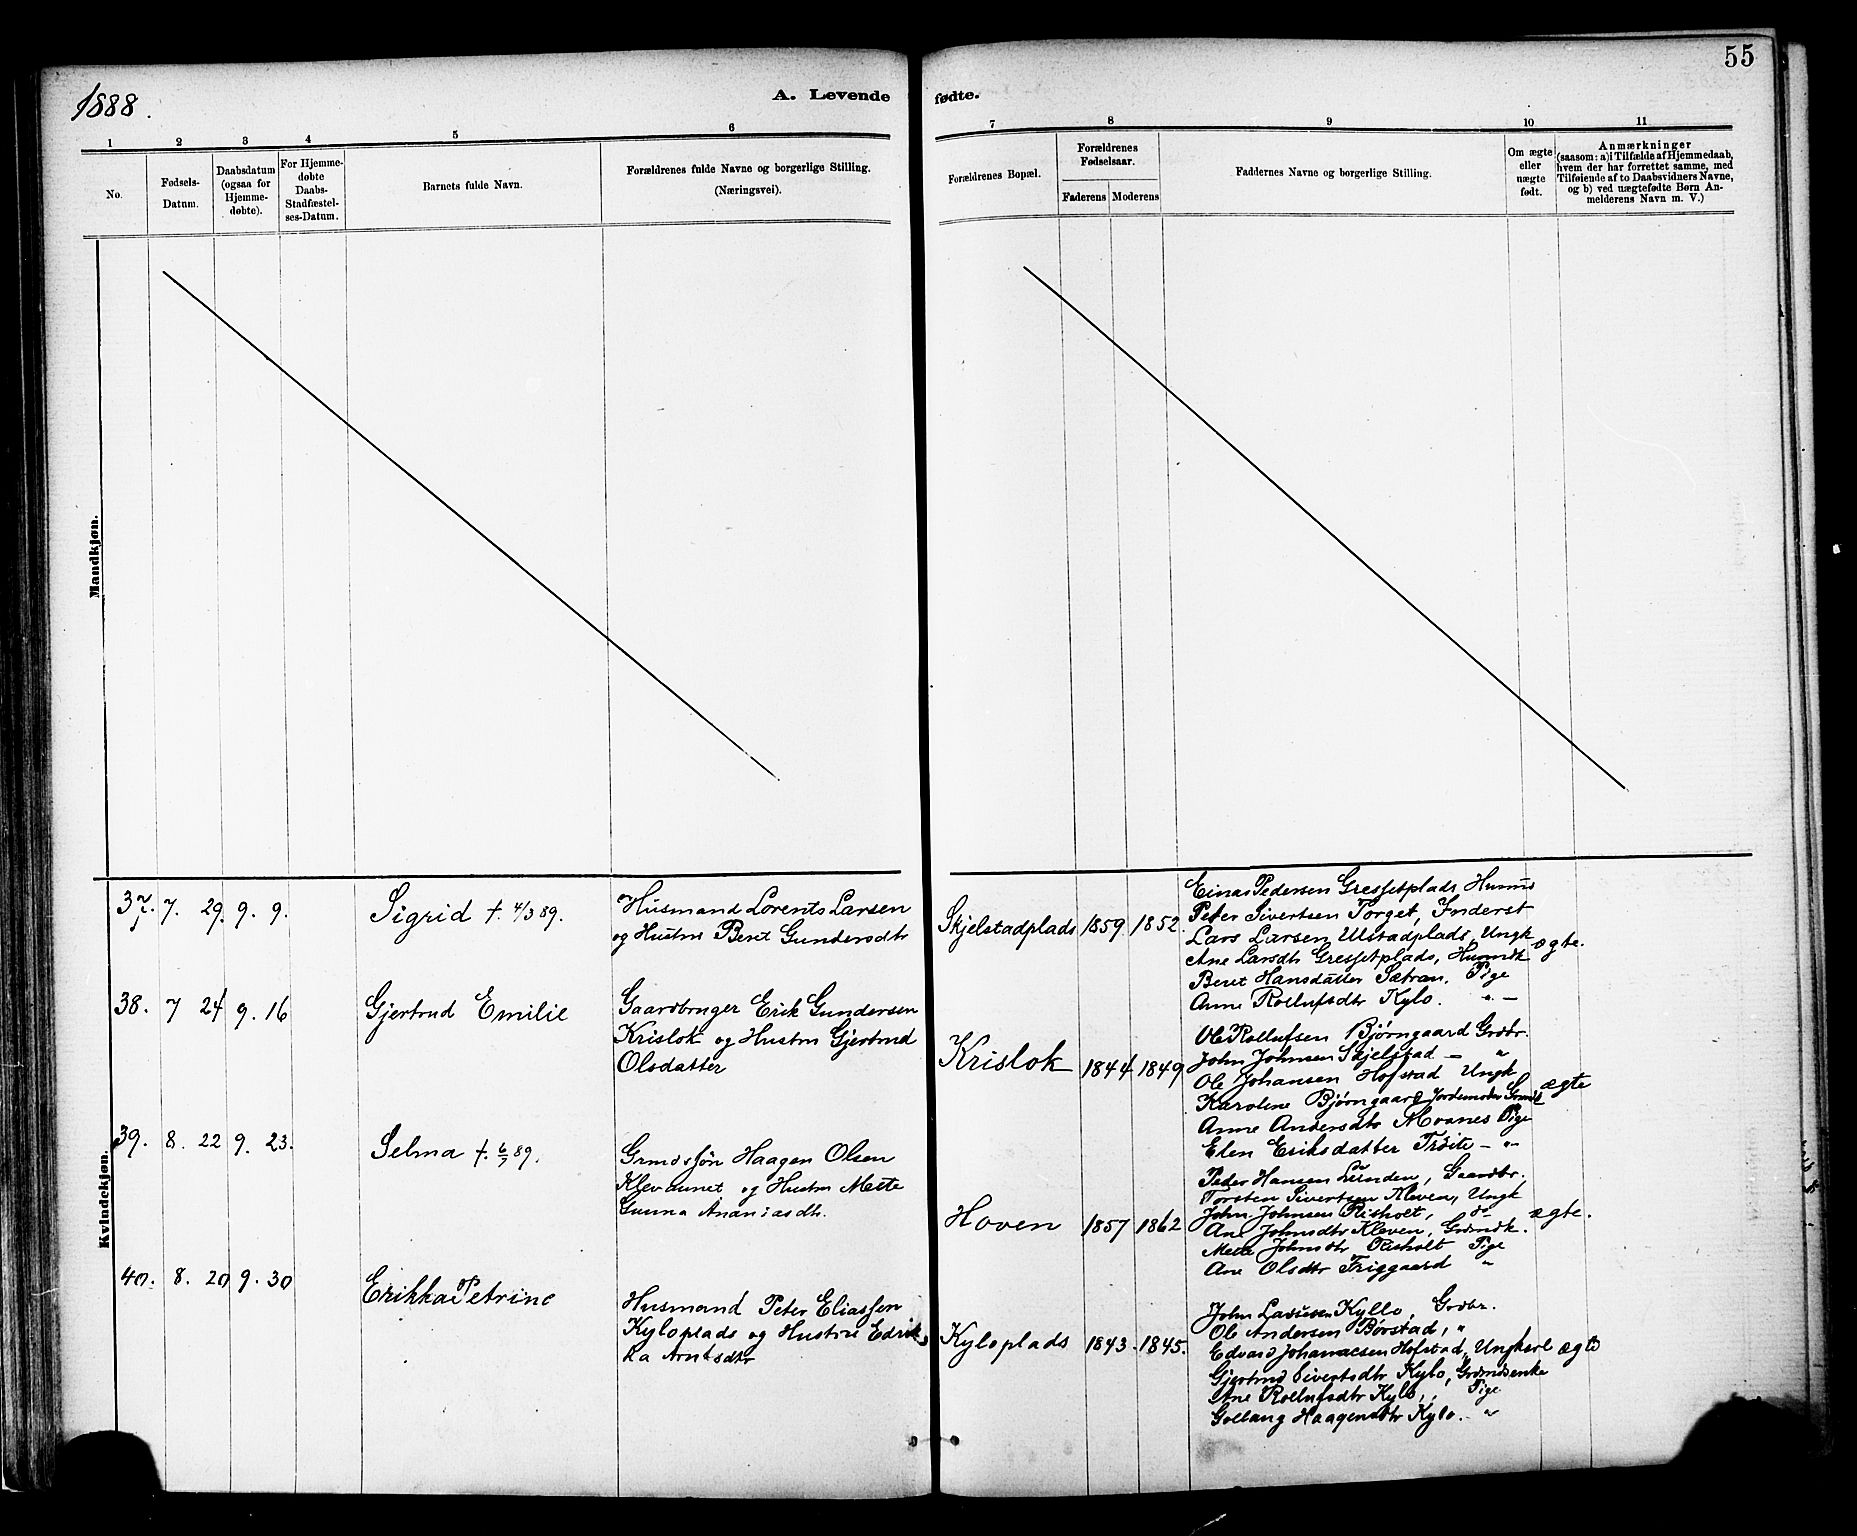 1888.
A. Levende fødte.
55
1
2
3
4
5
6
7
8
9
10
11
No.
Fødsels-
Datum.
Daabsdatum
(ogsaa for
Hjemme-
døbte).
For Hjemme-
døbte
Daabs-
Stadfæstel-
ses-Datum.
Barnets fulde Navn.
Forældrenes fulde Navne og borgerlige Stilling.
(Næringsvei).
Forældrenes Bopæl.
Forældrenes
Fødselsaar.
Faderens
Moderens
Faddernes Navne og borgerlige Stilling.
Om ægte
eller
uægte
født.
Anmærkninger
(saasom: a) i Tilfælde af Hjemmedaab,
hvem der har forrettet samme, med
Tilføiende af to Daabsvidners Navne,
og b) ved uægtefødte Børn An-
melderens Navn m. V.)
Mandkjøn.
Kvindekjøn.
37. 7. 29. 9. 9.
Sigrid †. 4/3 89.
Husmand Lorents Larsen
og Hustru Beret Gundersdtr
Skjelstadplads 1859. 1852.
Einar Pedersen Gressetplads, Husms
Peter Sivertsen Torget, Inderst
Lars Larsen Ulstadplads, Ungk
Ane Larsdtr Gressetplads, Husmdk
Beret Hansdatter Sætran, Pige
Anne Rollufsdtr Kylo. " —
ægte.
38. 7 24 9. 16
Gjertrud Emilie
Gaardbruger Erik Gundersen
Krislok og Hustru Gjertrud
Olsdatter
Krislok 1844 1849
Ole Rollufsen Bjørngaard Grdbr.
John Johnsen Skjelstad — "
Ole Johansen Hofstad Ungk
Karoline Bjørngaard Jordemoder
Anne Andersdtr Moanes Pige
Elen Eriksdatter Trøite — "
ægte
39. 8. 22 9. 23.
Selma †. 6/7 89.
Grmdssøn Haagen Olsen
Klevaunet og Hustru Mette
Gunna Ananiasdtr.
Hoven 1857 1862
Peder Hansen Lunden, Gaardbr.
Torsten Sivertsen Kleven, Ungk
John Johnsen Risholt, do
Ane Johnsdtr Kleven, Grdmdk.
Mette Johnsdtr Risholt Pige
Ane Olsdtr Friggaard "
ægte.
40. 8. 20 9. 30
Erikka Petrine
Husmand Peter Eliassen
Kyloplads og Hustru Edrik
ka Arntsdtr
Kyloplads 1843. 1845.
John Larssen Kyllo, Grdbr.
Ole Andersen Børstad, "
Edvard Johannesen Hofstad, Ungkarl
Gjertrud Sivertsdtr Kylo, Grdmdsenke
Ane Rollufsdtr Kylo, Pige
Gollaug Haagensdtr Kylo. "
ægte